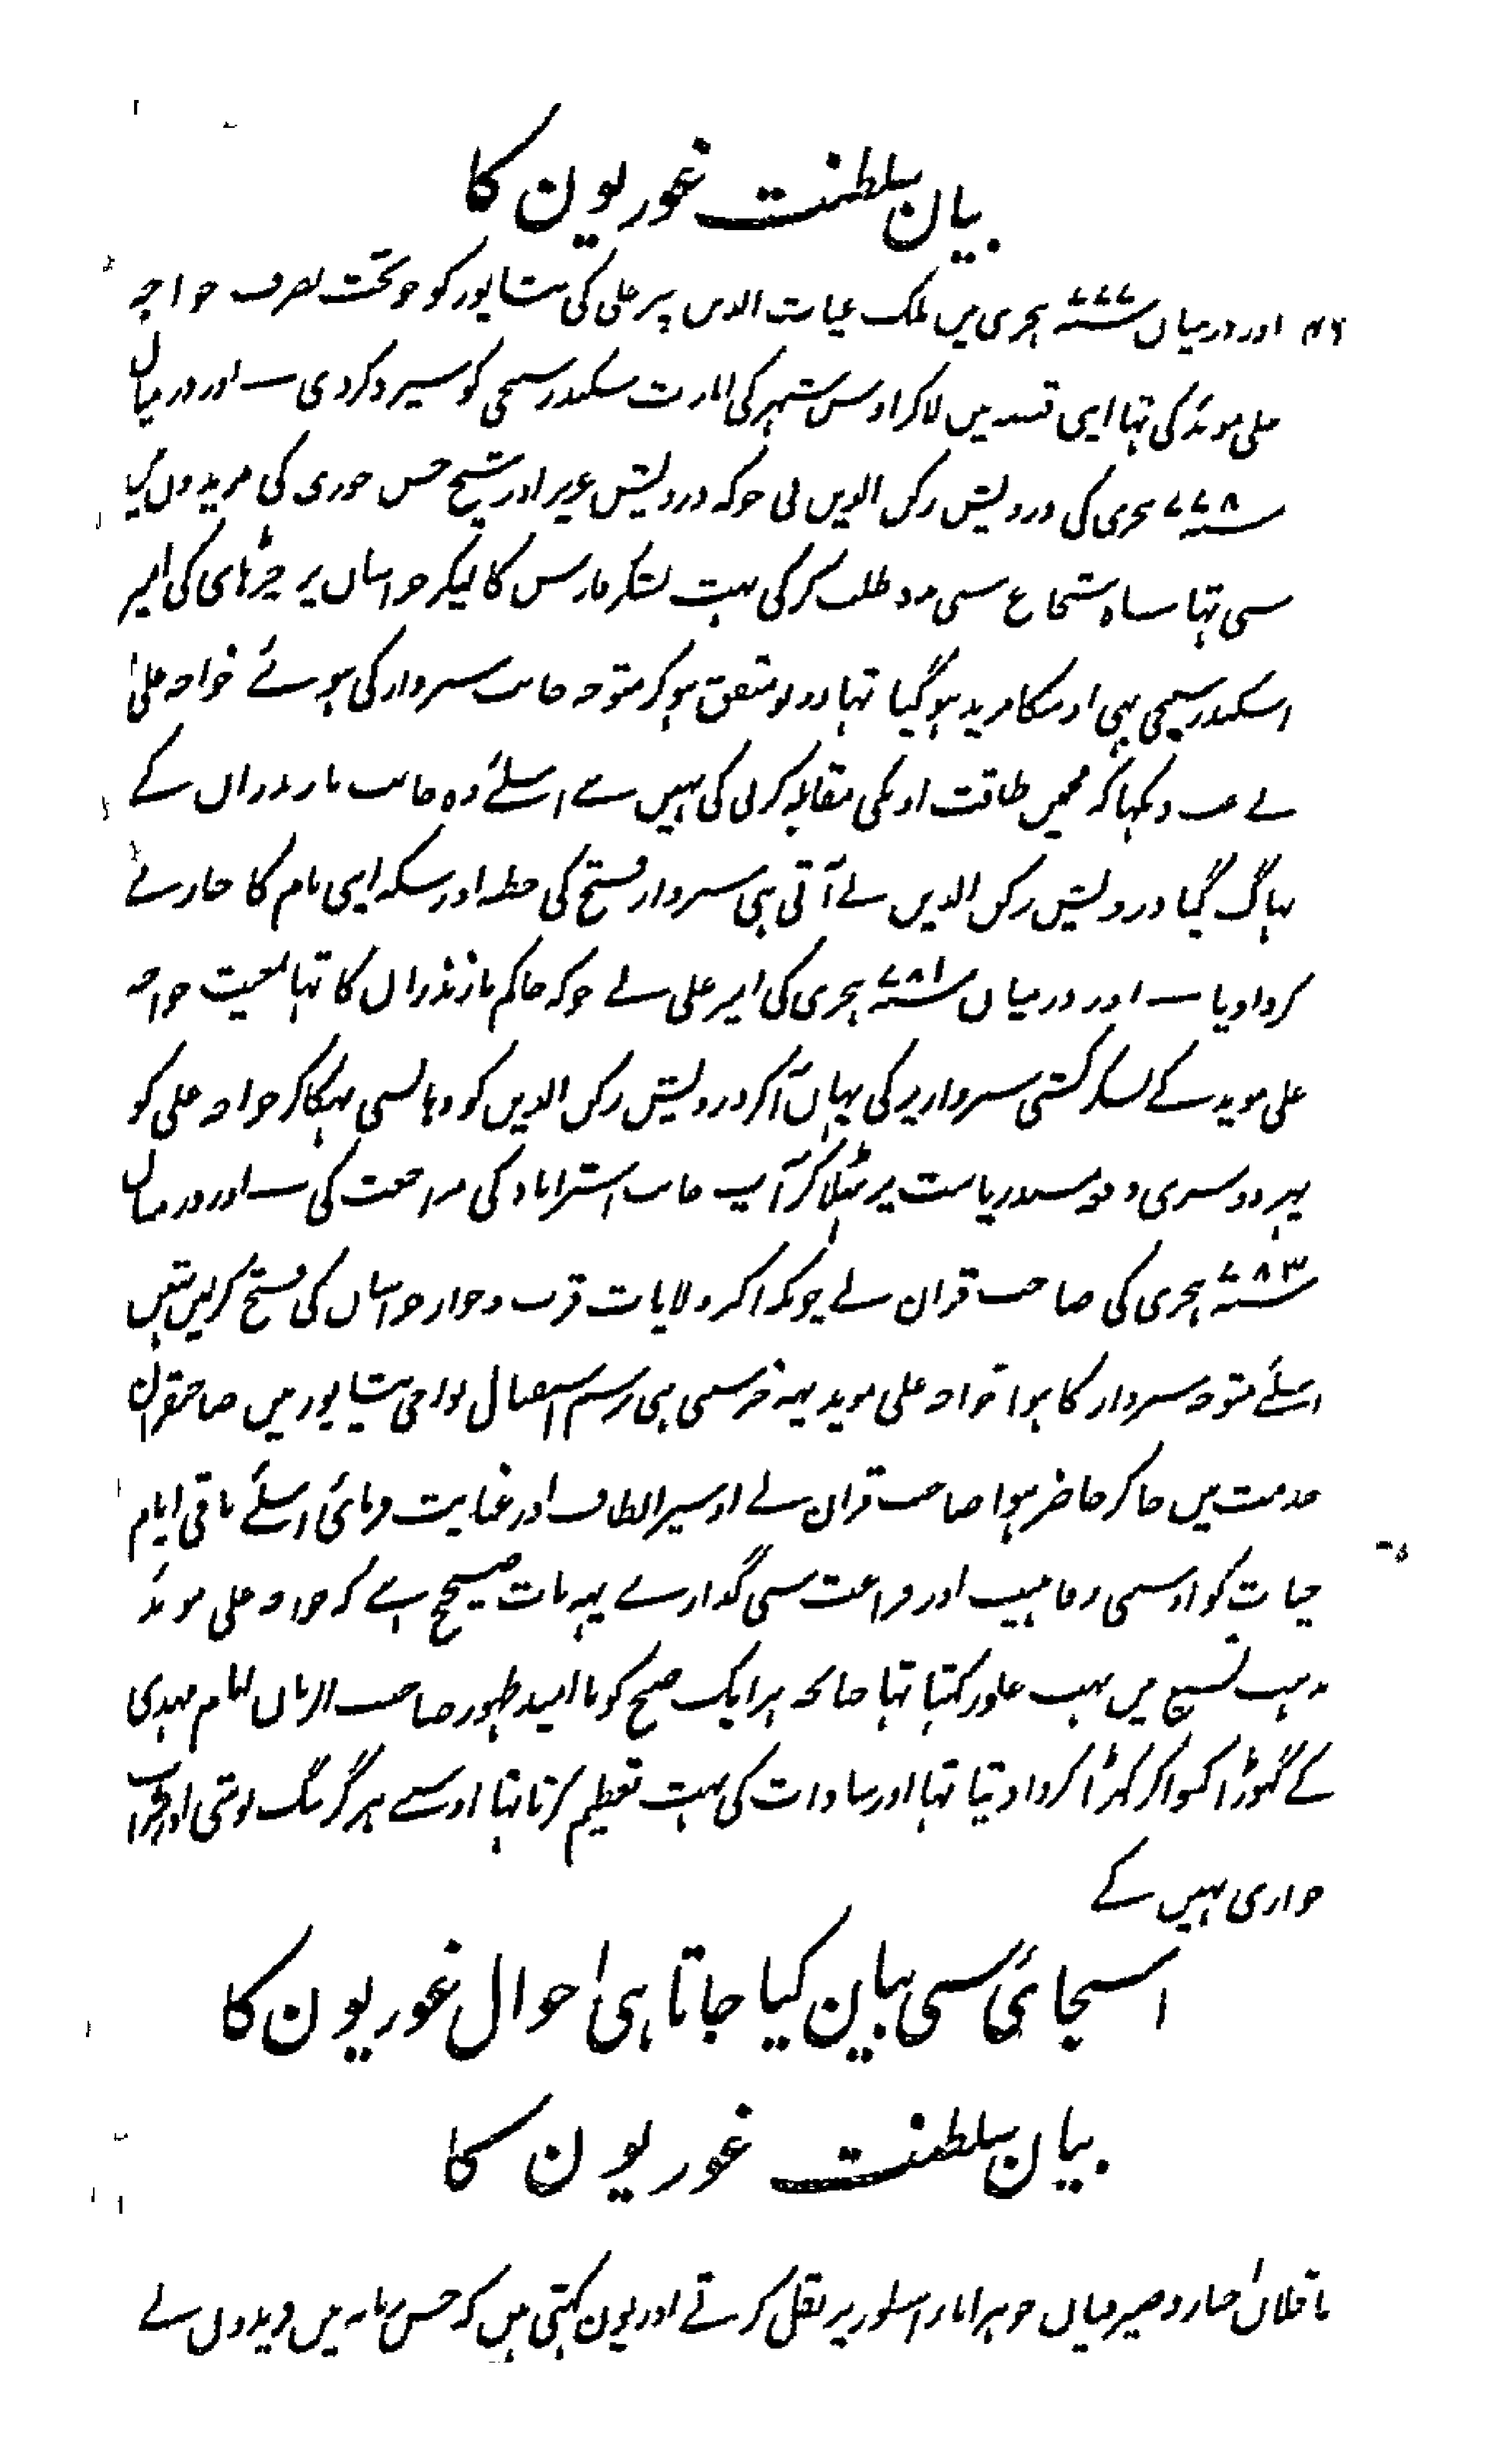 بیان سلطنت غوریون کا
اور درمیان سنہ ۷۷۷ ہجری میں ملک غیاث الدین پیر علی کی نیشاپور کو جو تحت تصرف خواجہ
علی موئد کی تہا اپنی قبضہ میں لاکر اوس شہر کی امارت سکندر شیخی کو سپرد کردی ـــ اور درمیان
سنہ ۷۷۸ ہجری کی درویش رکن الدین نی جو کہ درویش عزیز اور شیخ حسن جوری کی مریدوں میں
سی تہا شاہ شجاع سی مدد طلب کرکی بہت لشکر فارس کا لیکر خراسان پر چڑہای کی امیر
اسکندر شیخی بہی اوسکا مرید ہوگیا تہا دونو متفق ہوکر متوجہ جانب سبزوار کی ہوئے خواجہ علی
نے جب دیکہا کہ مجہیں طاقت اونکی مقابلہ کرنی کی نہیں ہے اسلئے وہ جانب مازندران کے
بہاگ گیا درویش رکن الدین نے آتی ہی سبزوار فتح کی خطبہ اور سکہ اپنی نام کا جاری
کروادیا ـــ اور درمیان سنہ ۷۸۱ ہجری کی امیر علی نے جو کہ حاکم مازندران کا تہا بمعیت خواجہ
علی موید کے لشکر کشی سبزوار پر کی یہاں آکر درویش رکن الدین کو وہانسی بہگاکر خواجہ علی کو
پہر دوسری دفعہ مسند ریاست پر بٹہلاکر آپ جانب استراباد کی مراجعت کی ـــ اور درمیان
سنہ ۷۸۳ ہجری کی صاحب قران نے چونکہ اکثر ولایات قرب و جوار خراسان کی فتح کرلیں تہیں
اسلئے متوجہ سبزوار کا ہوا خواجہ علی موید یہہ خبر سنتی ہی برسم استقبال نواحی نیشاپور میں صاحبقران
خدمت میں جاکر حاضر ہوا صاحب قران نے اوسپر الطاف اور عنایت فرمائی اسلئے باقی ایام
حیات کو اوسی رفاہیت اور فراغت سی گذارے یہہ بات صحیح ہے کہ خواجہ علی موئد
مذہب تشیع میں بہت غلو رکہتا تہا چنانچہ ہر ایک صبح کو باامید ظہور صاحب الزمان امام مہدی
کے گہوڑا کسواکر کہڑا کروادیتا تہا اور سادات کی بہت تعظیم کرتا تہا اوسنے ہرگز بنگ نوشی اور شراب
خواری نہیں کے
اسجائی سی بیان کیا جاتا ہی احوال غوریون کا
بیان سلطنت غوریون کا
ناقلان اخبار و مبصر میاں جوہر آثار اسطور پر نقل کرتے اور یون کہتی ہیں کہ جس زمانہ میں فریدون نے